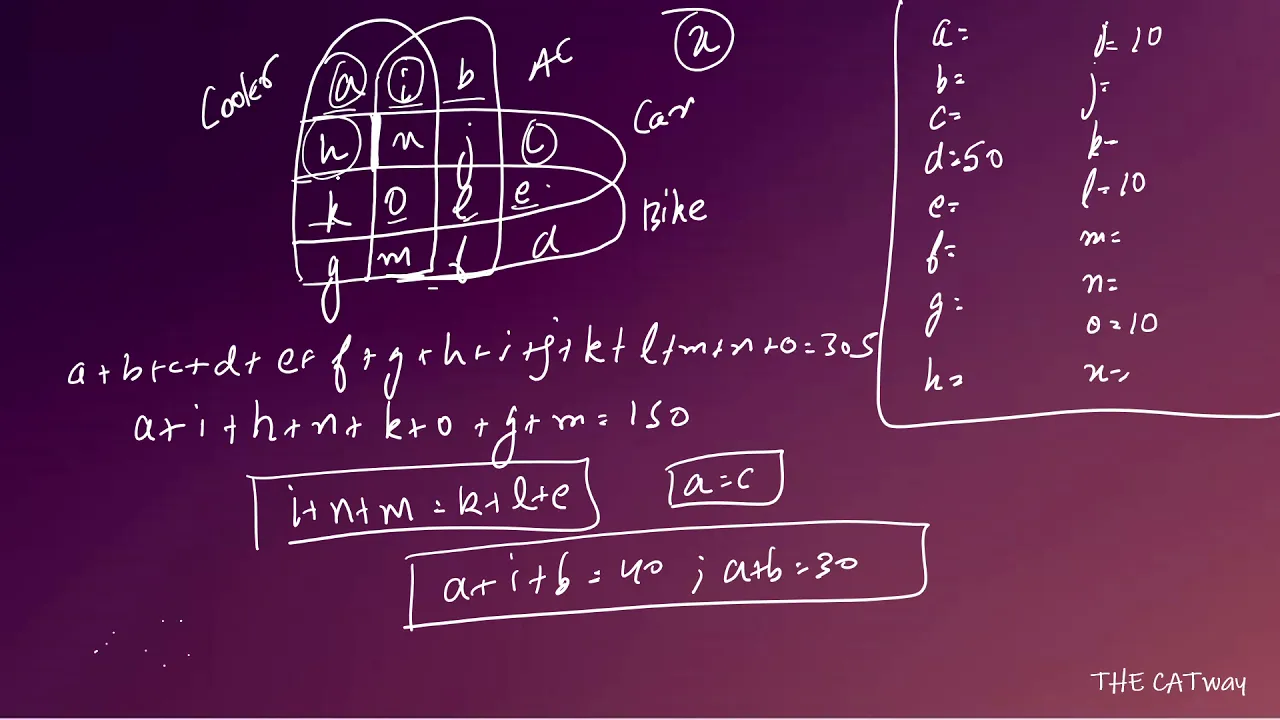 x
Cooler a i b AC
h n j c Car
k o l e Bike
g m f d
a+b+c+d+e+f+g+h+i+j+k+l+m+n+o=305
a+i+h+n+k+o+g+m=150
i+n+m=k+l+e
a=c
a+i+b=40 ; a+b=30
a= i=10
b= j=
c= k=
d=50 l=10
e= m=
f= n=
g= o=10
h= x=
THE CATway